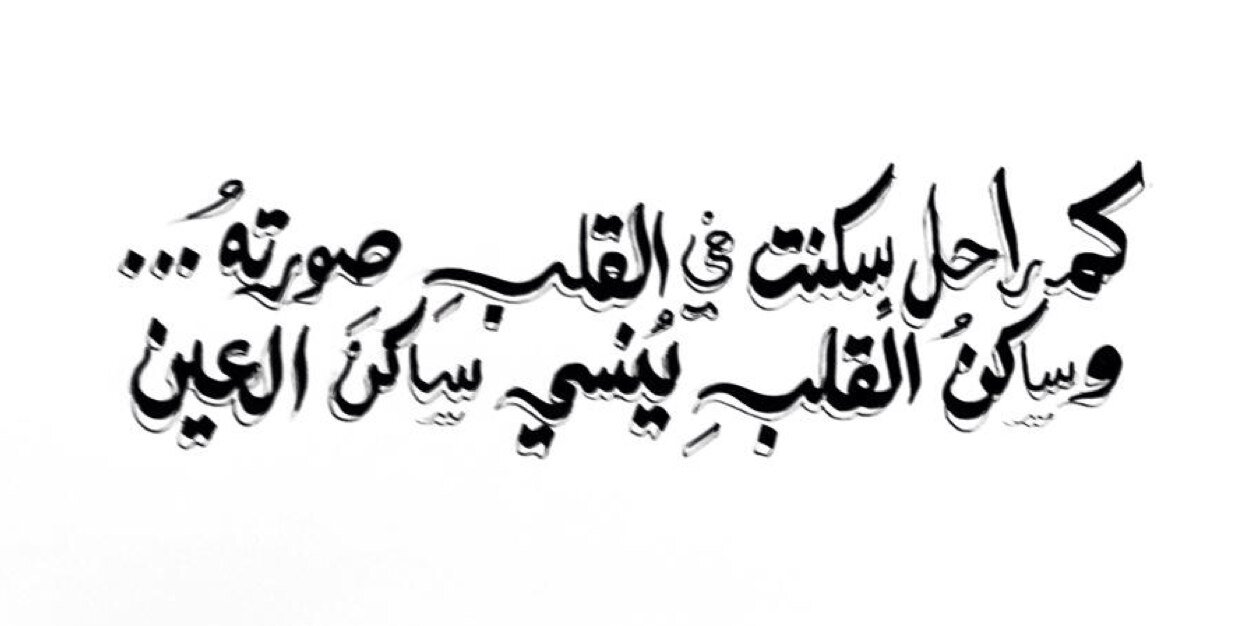 كم راحل سكنت في القلبِ صورتهُ ...
وساكنُ القلبِ يُنسي ساكنَ العين